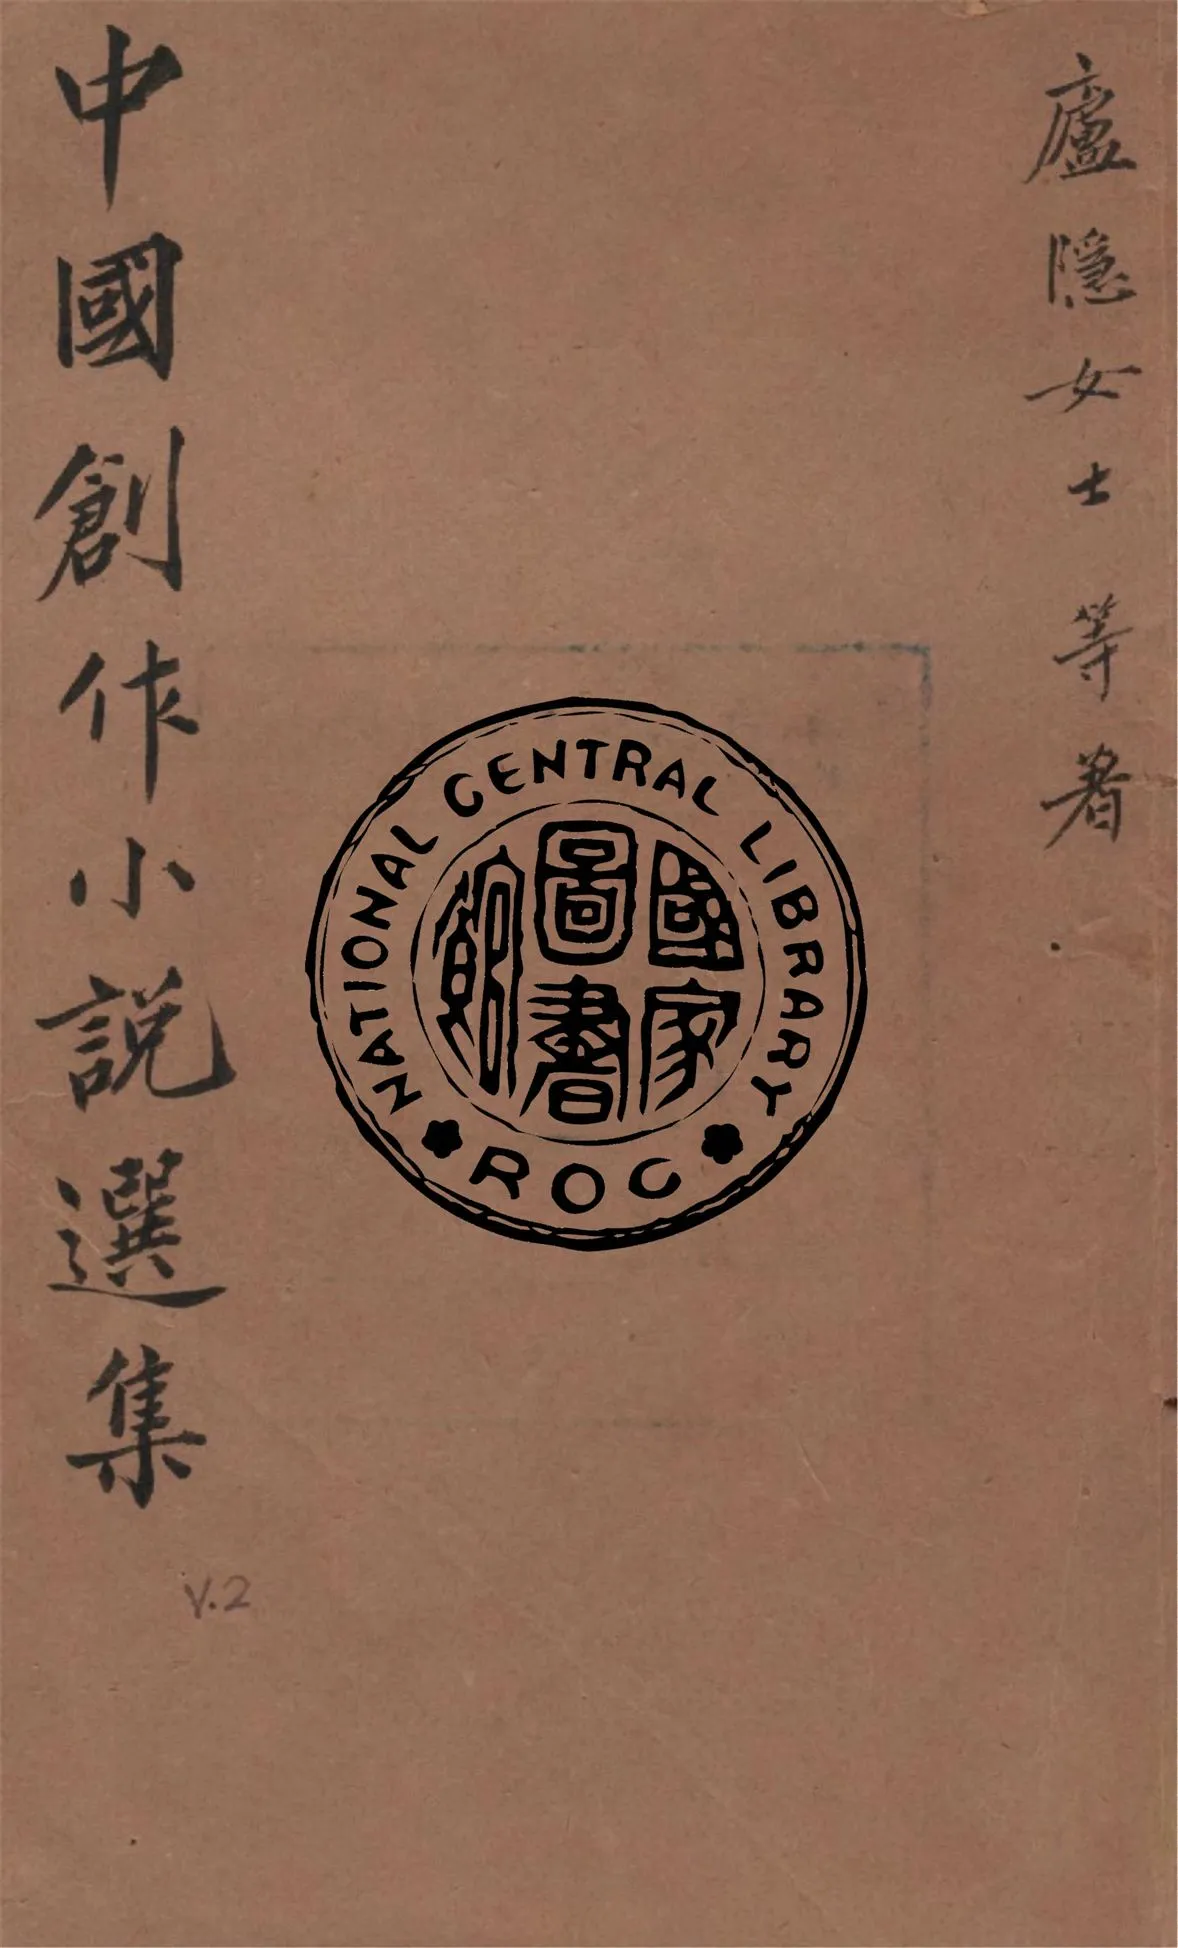 廬隱女士等著
中國創作小説選集
V.2
NATIONAL CENTRAL LIBRARY
國家
圖書
館
ROC